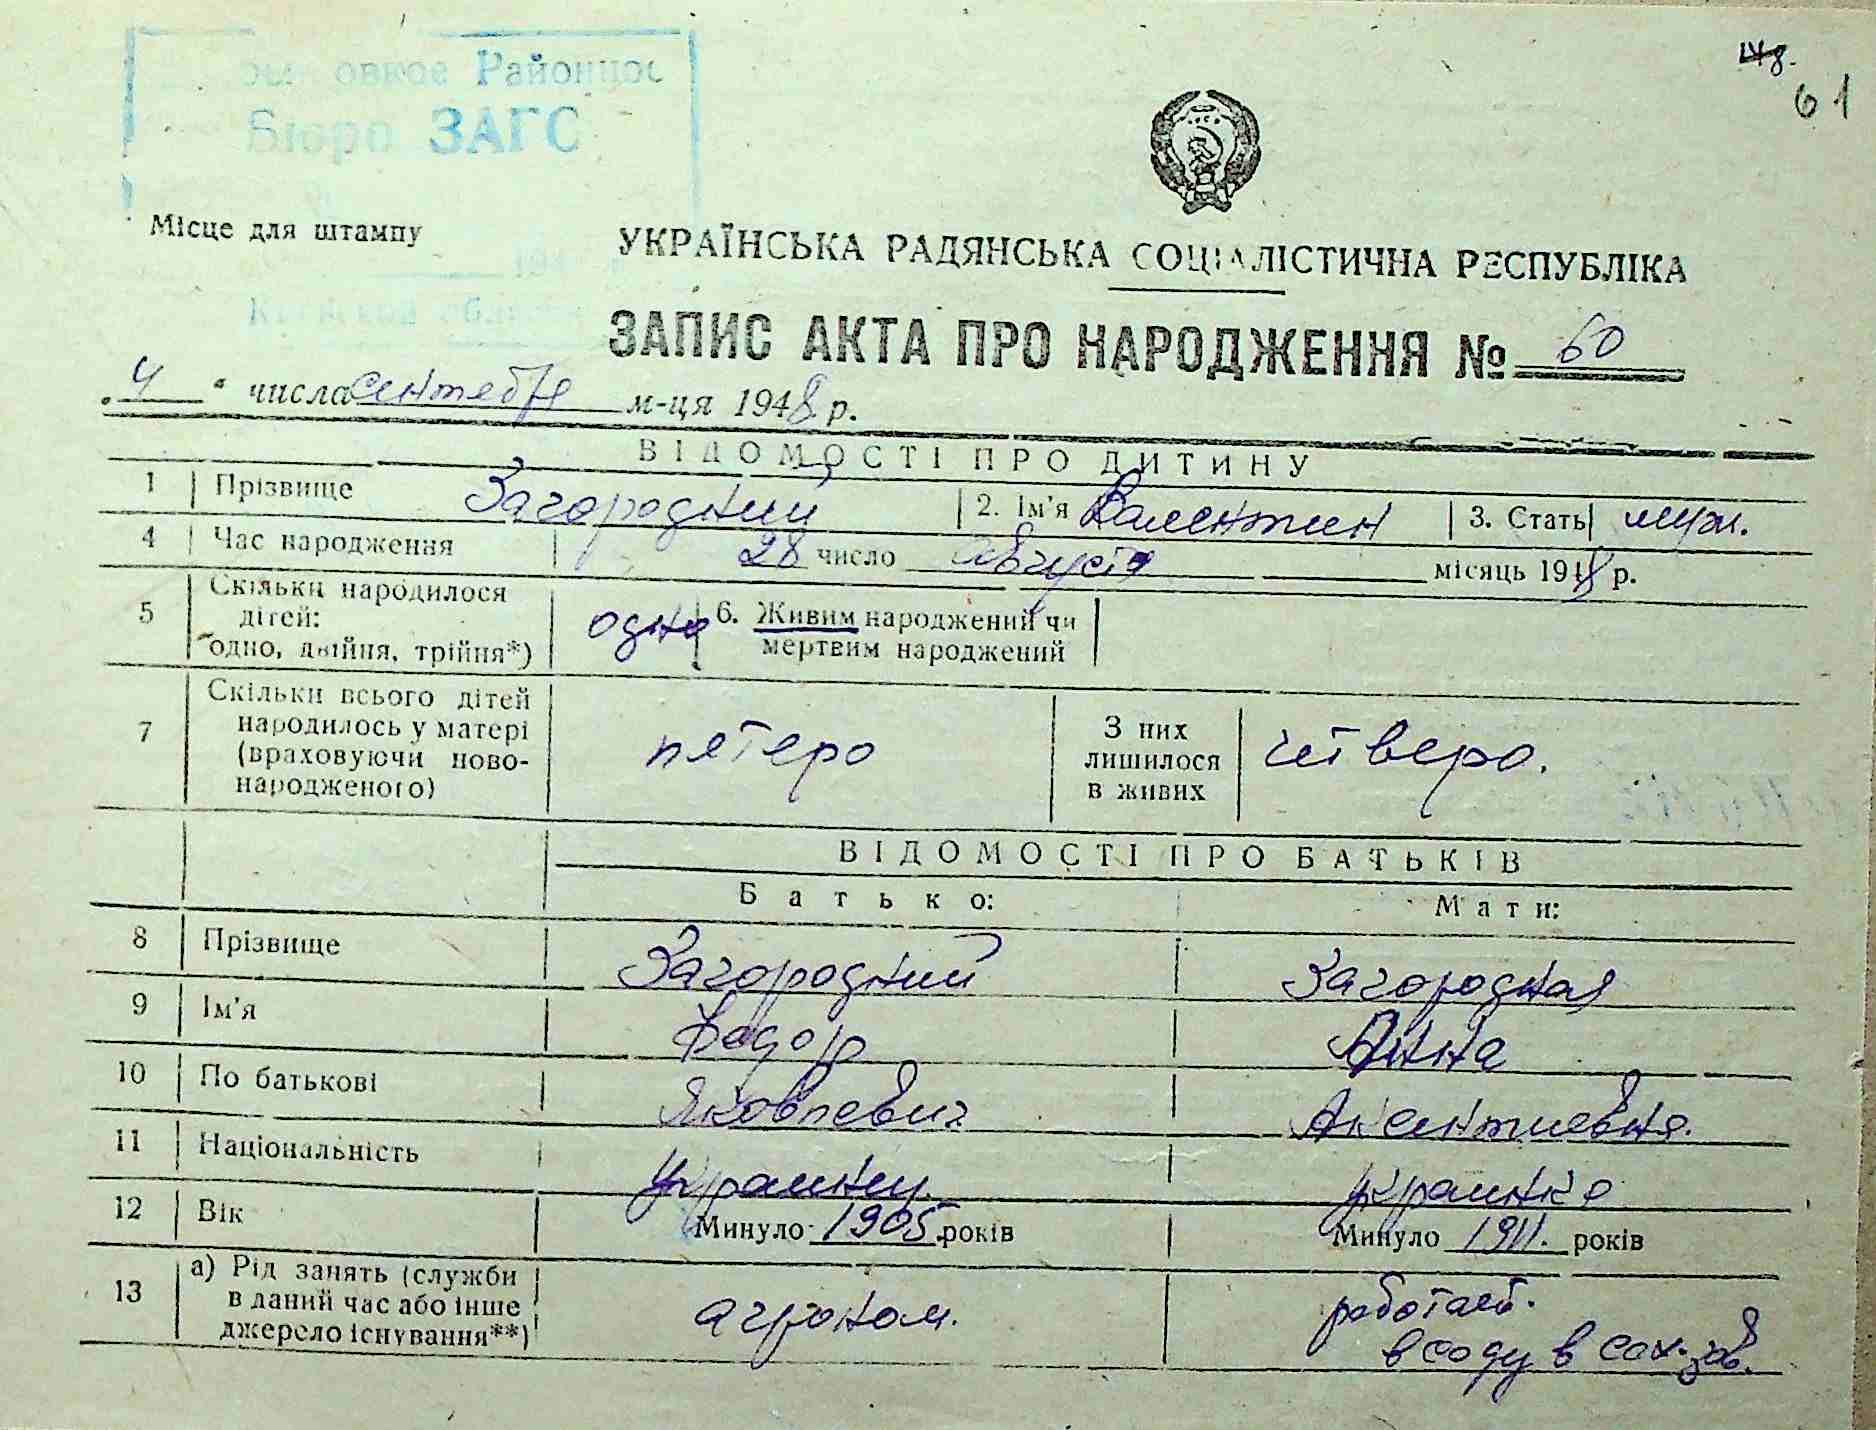 Районное
Бюро ЗАГС
61
Місце для штампу
УКРАЇНСЬКА РАДЯНСЬКА СОЦІАЛІСТИЧНА РЕСПУБЛІКА
ЗАПИС АКТА ПРО НАРОДЖЕННЯ № 60
„4“ числа сентебря м-ця 1948 р.
ВІДОМОСТІ ПРО ДИТИНУ
1 Прізвище Загородний 2. Ім'я Валентин 3. Стать муж.
4 Час народження 28 число августа місяць 1948 р.
5 Скільки народилося дітей: одно, двійня, трійня*) одно 6. Живим народжений чи мертвим народжений
7 Скільки всього дітей народилось у матері (враховуючи новонародженого) пятеро З них лишилося в живих четверо.
ВІДОМОСТІ ПРО БАТЬКІВ
Батько: Мати:
8 Прізвище Загородний Загородная
9 Ім'я Федор Анна
10 По батькові Яковлевич Аксентиевна.
11 Національність украинец. украинка
12 Вік Минуло 1905 років Минуло 1911. років
13 а) Рід занять (служби в даний час або інше джерело існування**) агроном. работает. в саду в сах. зав.